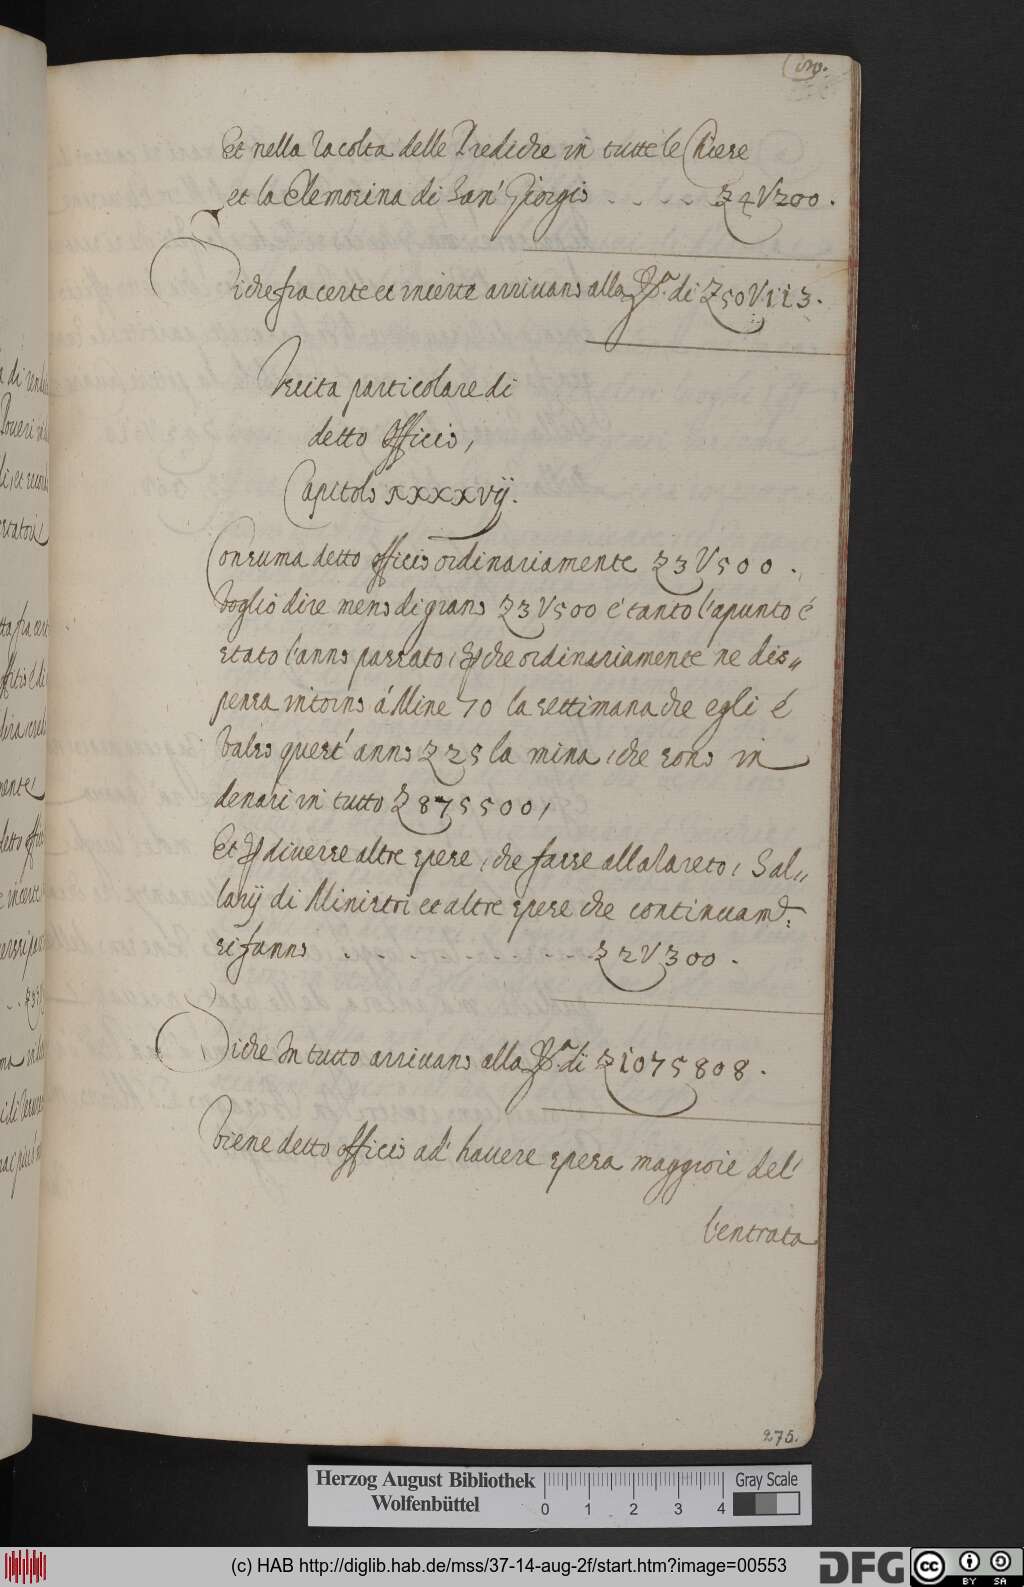 Et nella racolta delle Prediche in tutte le Chiese
et la Elemosina di San' Giorgio . . . . £ 4V200.
Siche fra certe et incerte arrivano alla Sᵃ. di £ 50V113.
Uscita particolare di
detto Officio,
Capitolo xxxxvij.
Consuma detto officio ordinariamente £ 3V500.
Voglio dire meno di grano £ 3V500 é tanto l'apunto é
stato l'anno passato, che ordinariamente ne dis„
pensa intorno á Mine 70 la settimana che egli é
Valso quest' anno £ 25 la mina, che sono in
denari in tutto £ 875500,
Et diverse altre spese, che fasse alla Lazareto, Sal„
larij di Ministri et altre spese che continuamᵗᵉ
si fanno . . . . . . . . . £ 2V300.
Siche In tutto arrivano alla Sᵃ. di £ 1075808.
Viene detto officio ad' havere spesa maggiore del'
l'entrata
275.
Herzog August Bibliothek
Wolfenbüttel
0 1 2 3 4
Gray Scale
(c) HAB http://diglib.hab.de/mss/37-14-aug-2f/start.htm?image=00553
DFG
cc BY SA